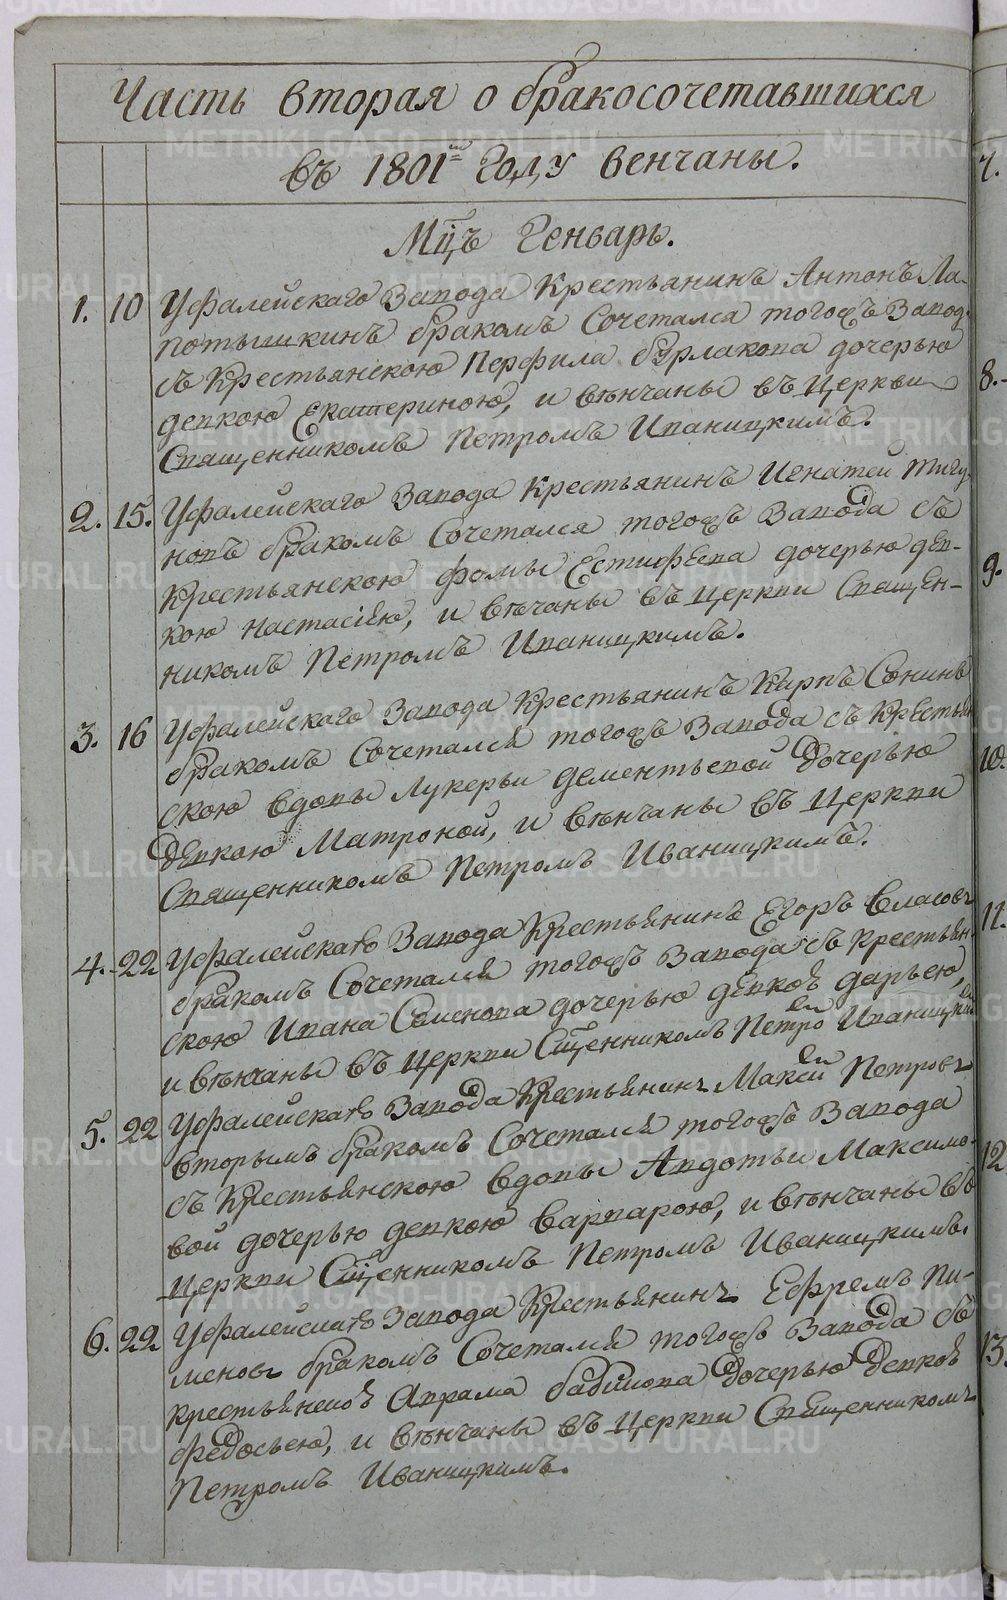 Часть вторая о бракосочетавшихся
въ 1801м году венчаны.
Мцъ Генварь.
1. 10 Уфалейскаго Завода Крестьянинъ Антонъ Ла-
потышкинъ бракомъ Сочетался тогожъ Завод
съ Крестьянскою Перфила бурлакова дочерью
девкою Екатериною, и вѣнчаны въ Церкви
Священникомъ Петромъ Иваницкимъ.
2. 15. Уфалейскаго Завода Крестьянинъ Игнатей Тигу-
новъ бракомъ Сочетался тогожъ Завода съ
Крестьянскою фомы Естифѣева дочерью дев-
кою Настасіею, и вѣчаны въ Церкви Священ-
никомъ Петромъ Иваницкимъ.
3. 16 Уфалейскаго Завода Крестьянинъ Карпъ Сонинъ
бракомъ Сочетался тогожъ Завода съ Крестьян
скою вдовы Лукерьи дементьевой дочерью
девкою Матроной, и вѣнчаны въ Церкви
Священникомъ Петромъ Иваницкимъ.
4. 22 Уфалейскаго Завода Крестьянинъ Егоръ Власовъ
бракомъ Сочетался тогожъ Завода съ Крестьян
скою Ивана Семенова дочерью девкою дарьею,
и вѣнчаны въ Церкви Сщенникомъ Петромъ Иваницким
5. 22 Уфалейскаго Завода Крестьянинъ Максим Петровъ
вторымъ бракомъ Сочетался тогожъ Завода
съ Крестьянскою вдовы Авдотьи Максимо-
вой дочерью девкою варварою, и вѣнчаны въ
Церкви Сщенникомъ Петромъ Иваницкимъ.
6. 22 Уфалейскаго Завода Крестьянинъ Ефремъ Пи-
меновъ бракомъ Сочетался тогожъ Завода съ
крестьянскою Аврама бабинова дочерью девкою
федосьею, и вѣнчаны въ Церкви Священникомъ
Петромъ Иваницкимъ.
7.
8.
9.
10.
11.
12
13.
METRIKI.GASO-URAL.RU